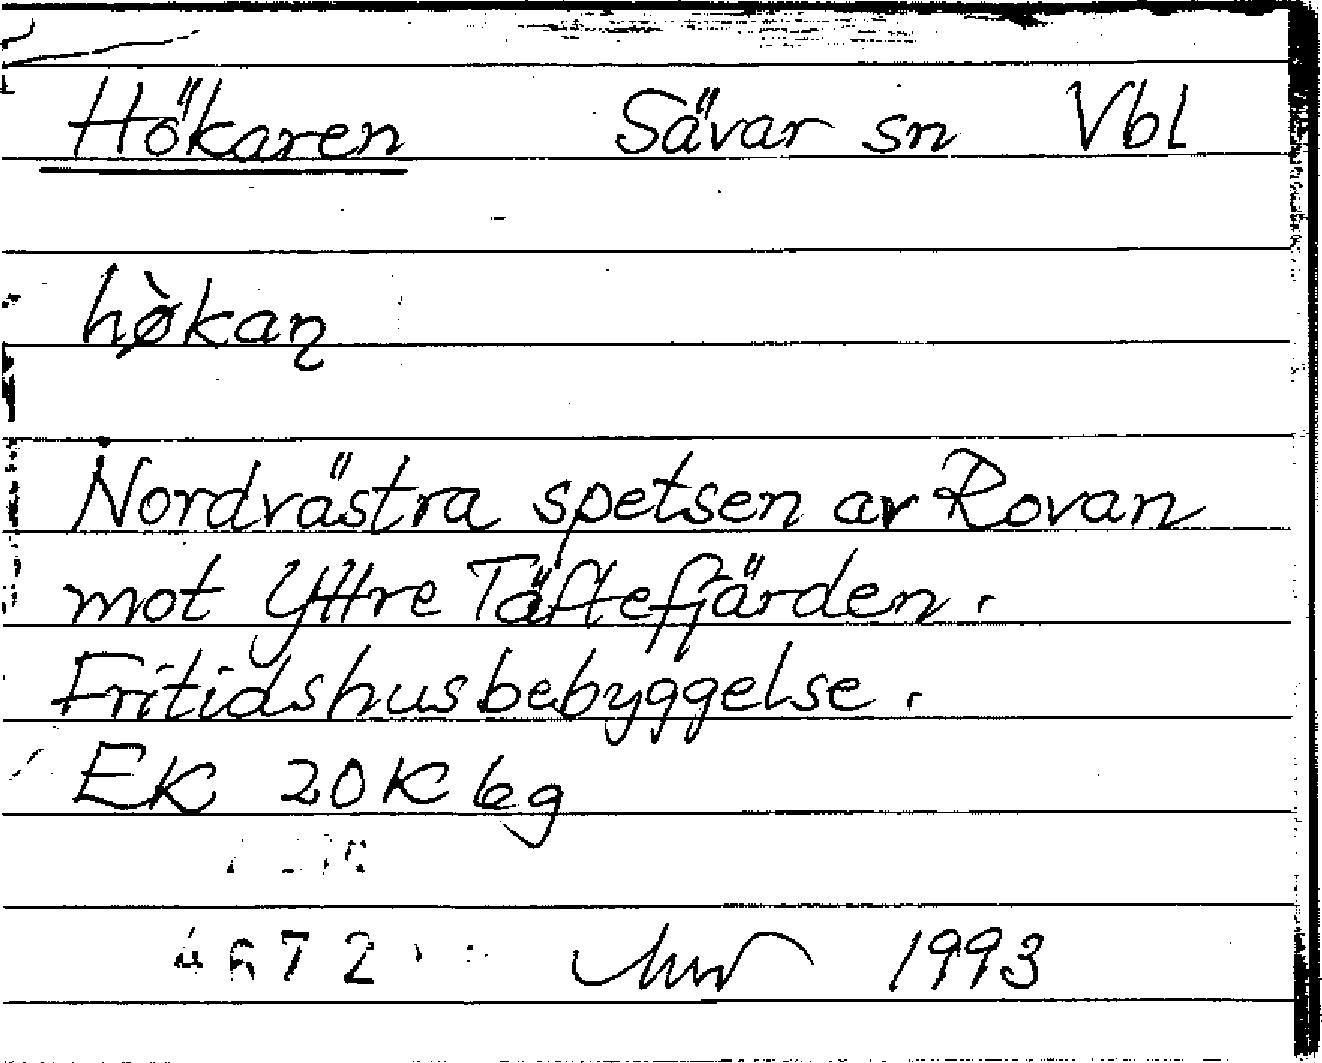 Hökaren Sävar sn Vbl
hø̀kaɳ
Nordvästra spetsen av Rovan
mot Yttre Täftefjärden.
Fritidshusbebyggelse.
EK 20K 6g
1993